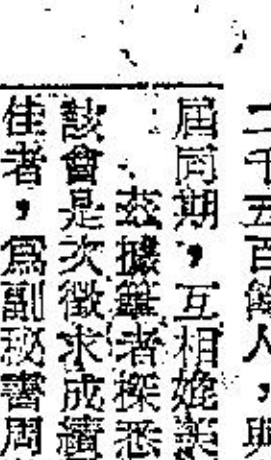 二千五百餘人，與
屆同期，互相媲美
茲據筆者探悉
該會是次徵求成績
佳者，爲副秘書周